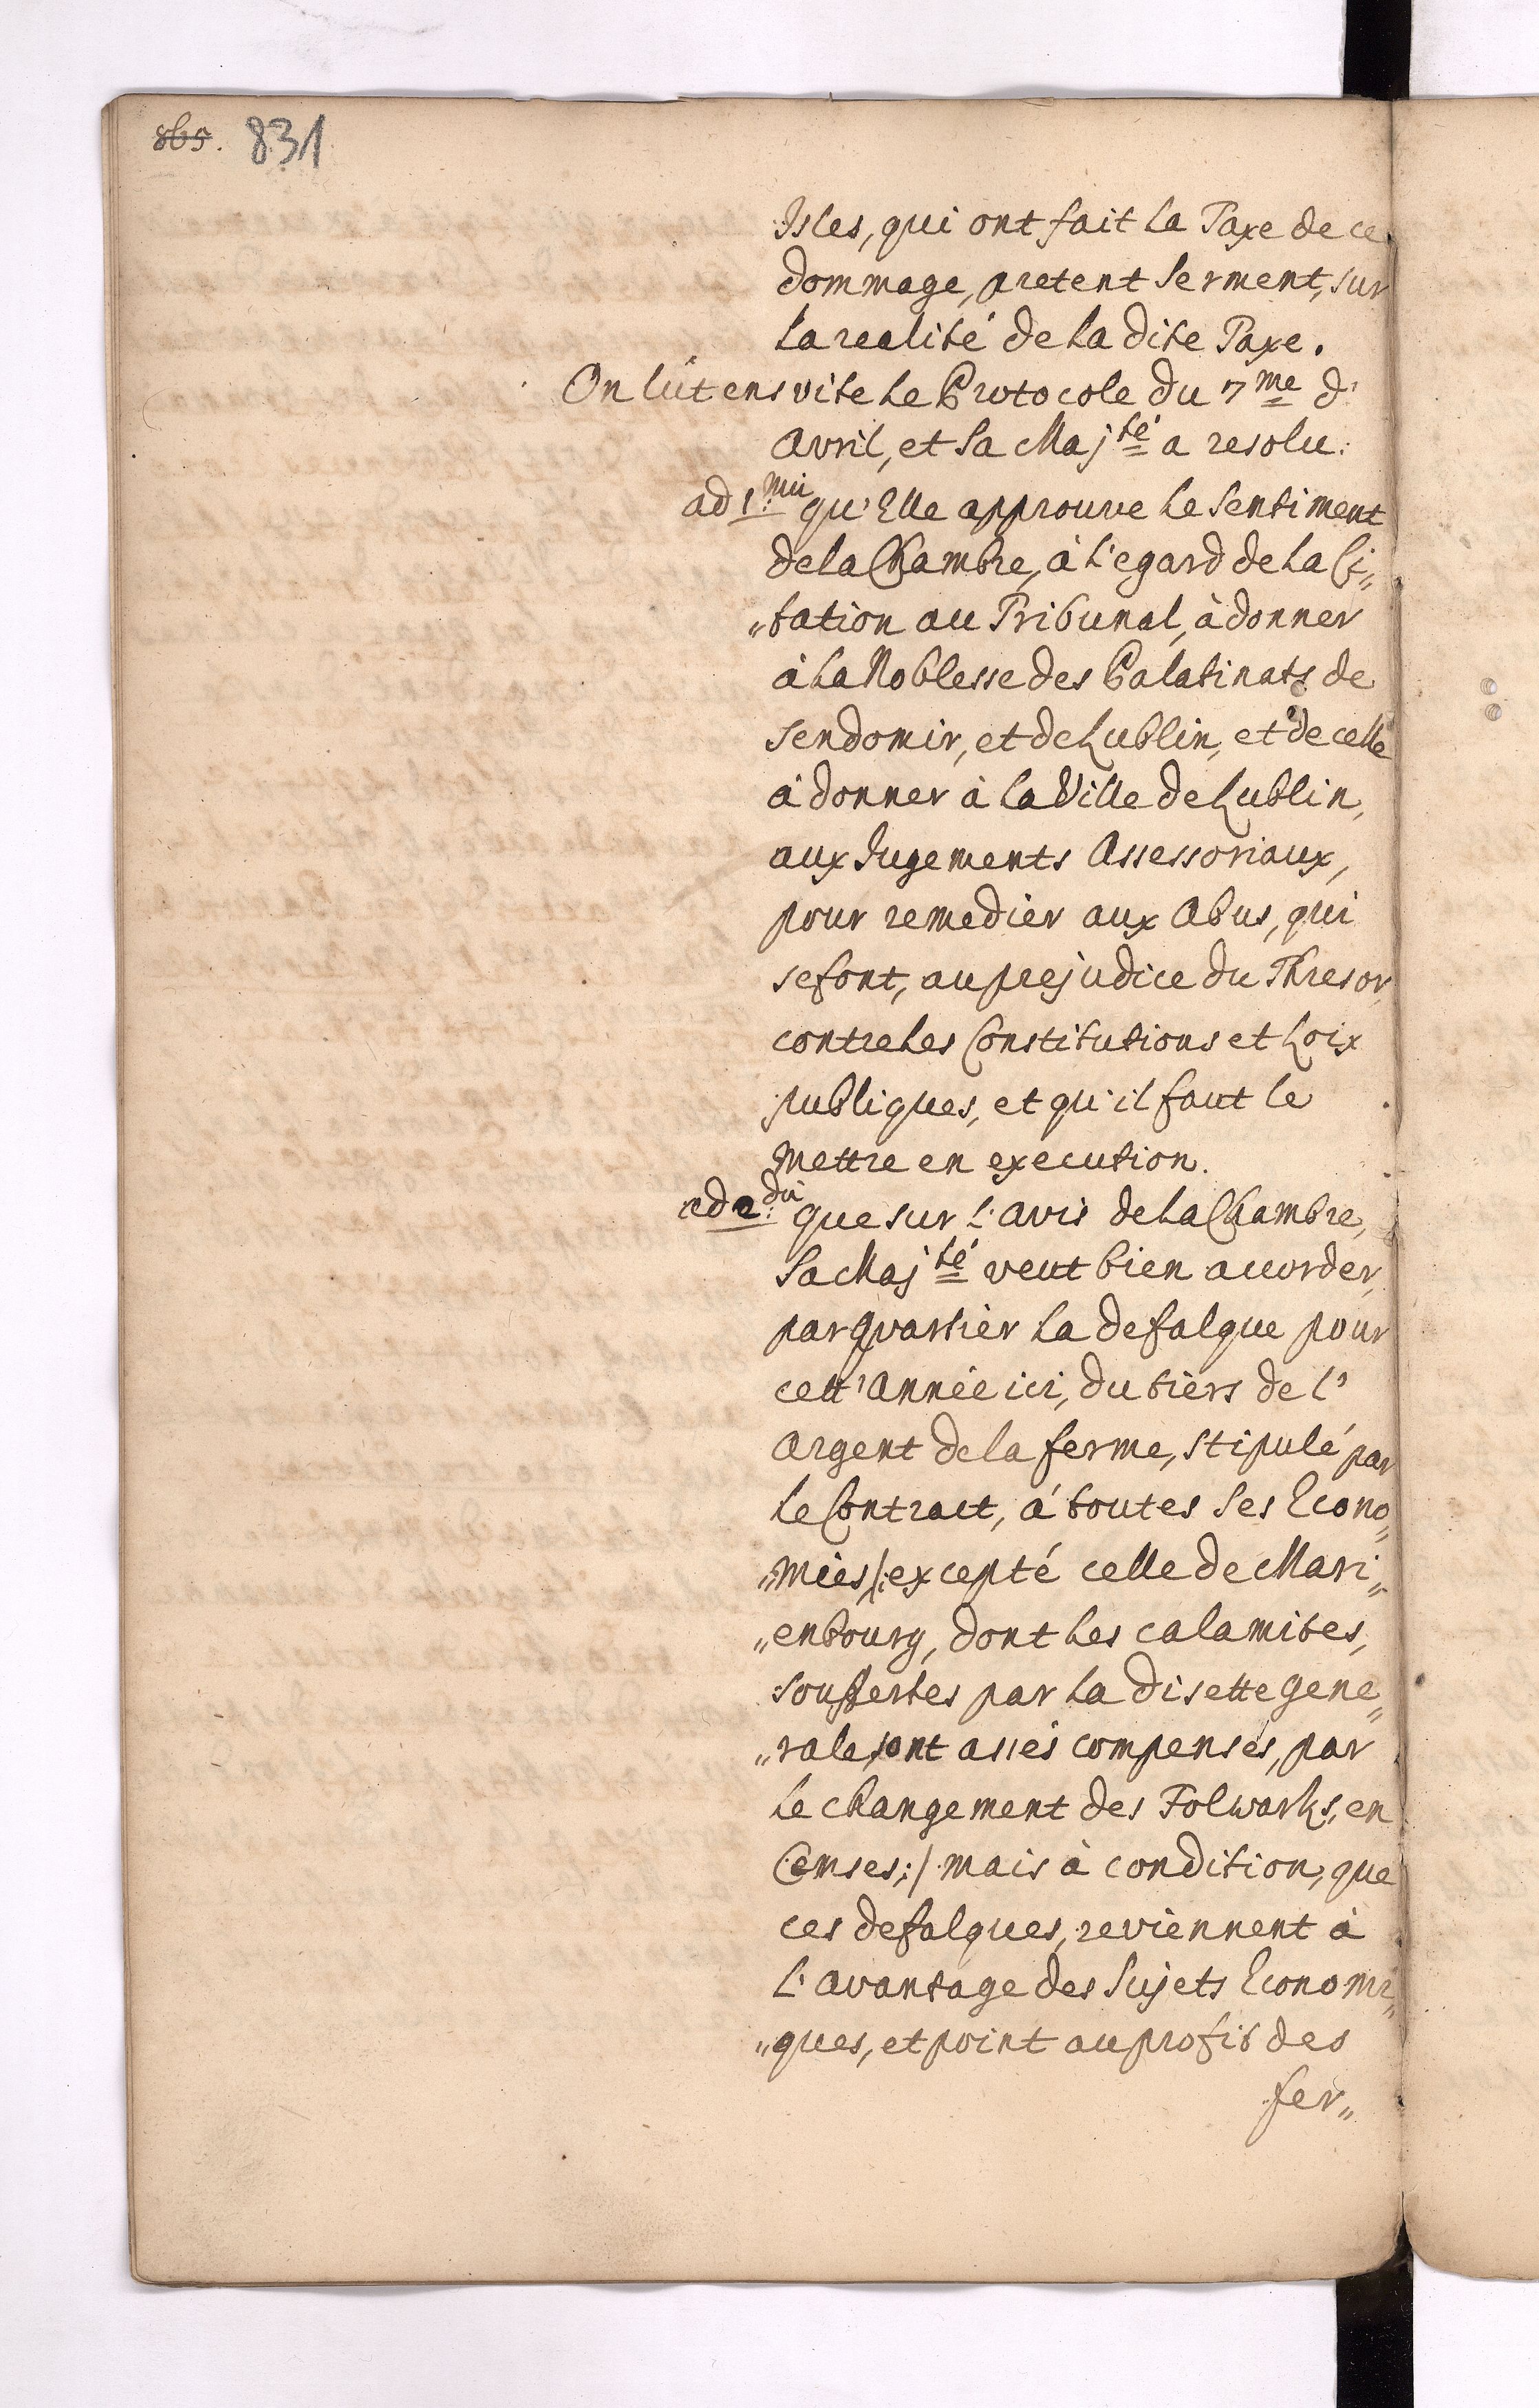 865. 831
Isles, qui ont fait la Taxe de ce
dommage, pretent Serment, sur
la realité de la dite Taxe.
On lût ensvite le Protocole du 7me d'
Avril, et Sa Majté a resolu:
ad 1.mū qu'Elle approuve le Sentiment
de la Chambre, à l'egard de la Ci„
„tation au Tribunal, à donner
à la Noblesse des Palatinats de
Sendomir, et de Lublin, et de celle
à donner à la Ville de Lublin,
aux Jugements Assessoriaux,
pour remedier aux Abus, qui
se font, au prejudice du Thresor,
contre les Constitutions et Loix
publiques, et qu'il faut le
mettre en execution.
ad 2.dū que sur l'avis de la Chambre,
Sa Majté veut bien accorder,
par qvartier la defalque pour
cett'Année ici, du tiers de l'
Argent de la ferme, stipulé par
le Contract, à toutes Ses Econo„
„mies /: excepté celle de Mari„
„enbourg, dont les calamites,
souffertes par la disette gene„
„rale sont assés compensés, par
le changement des Folwarks, en
Censes; :/ mais à condition, que
ces defalques, reviennent à
l'avantage des Sujets Economi„
„ques, et point au profit des
fer„